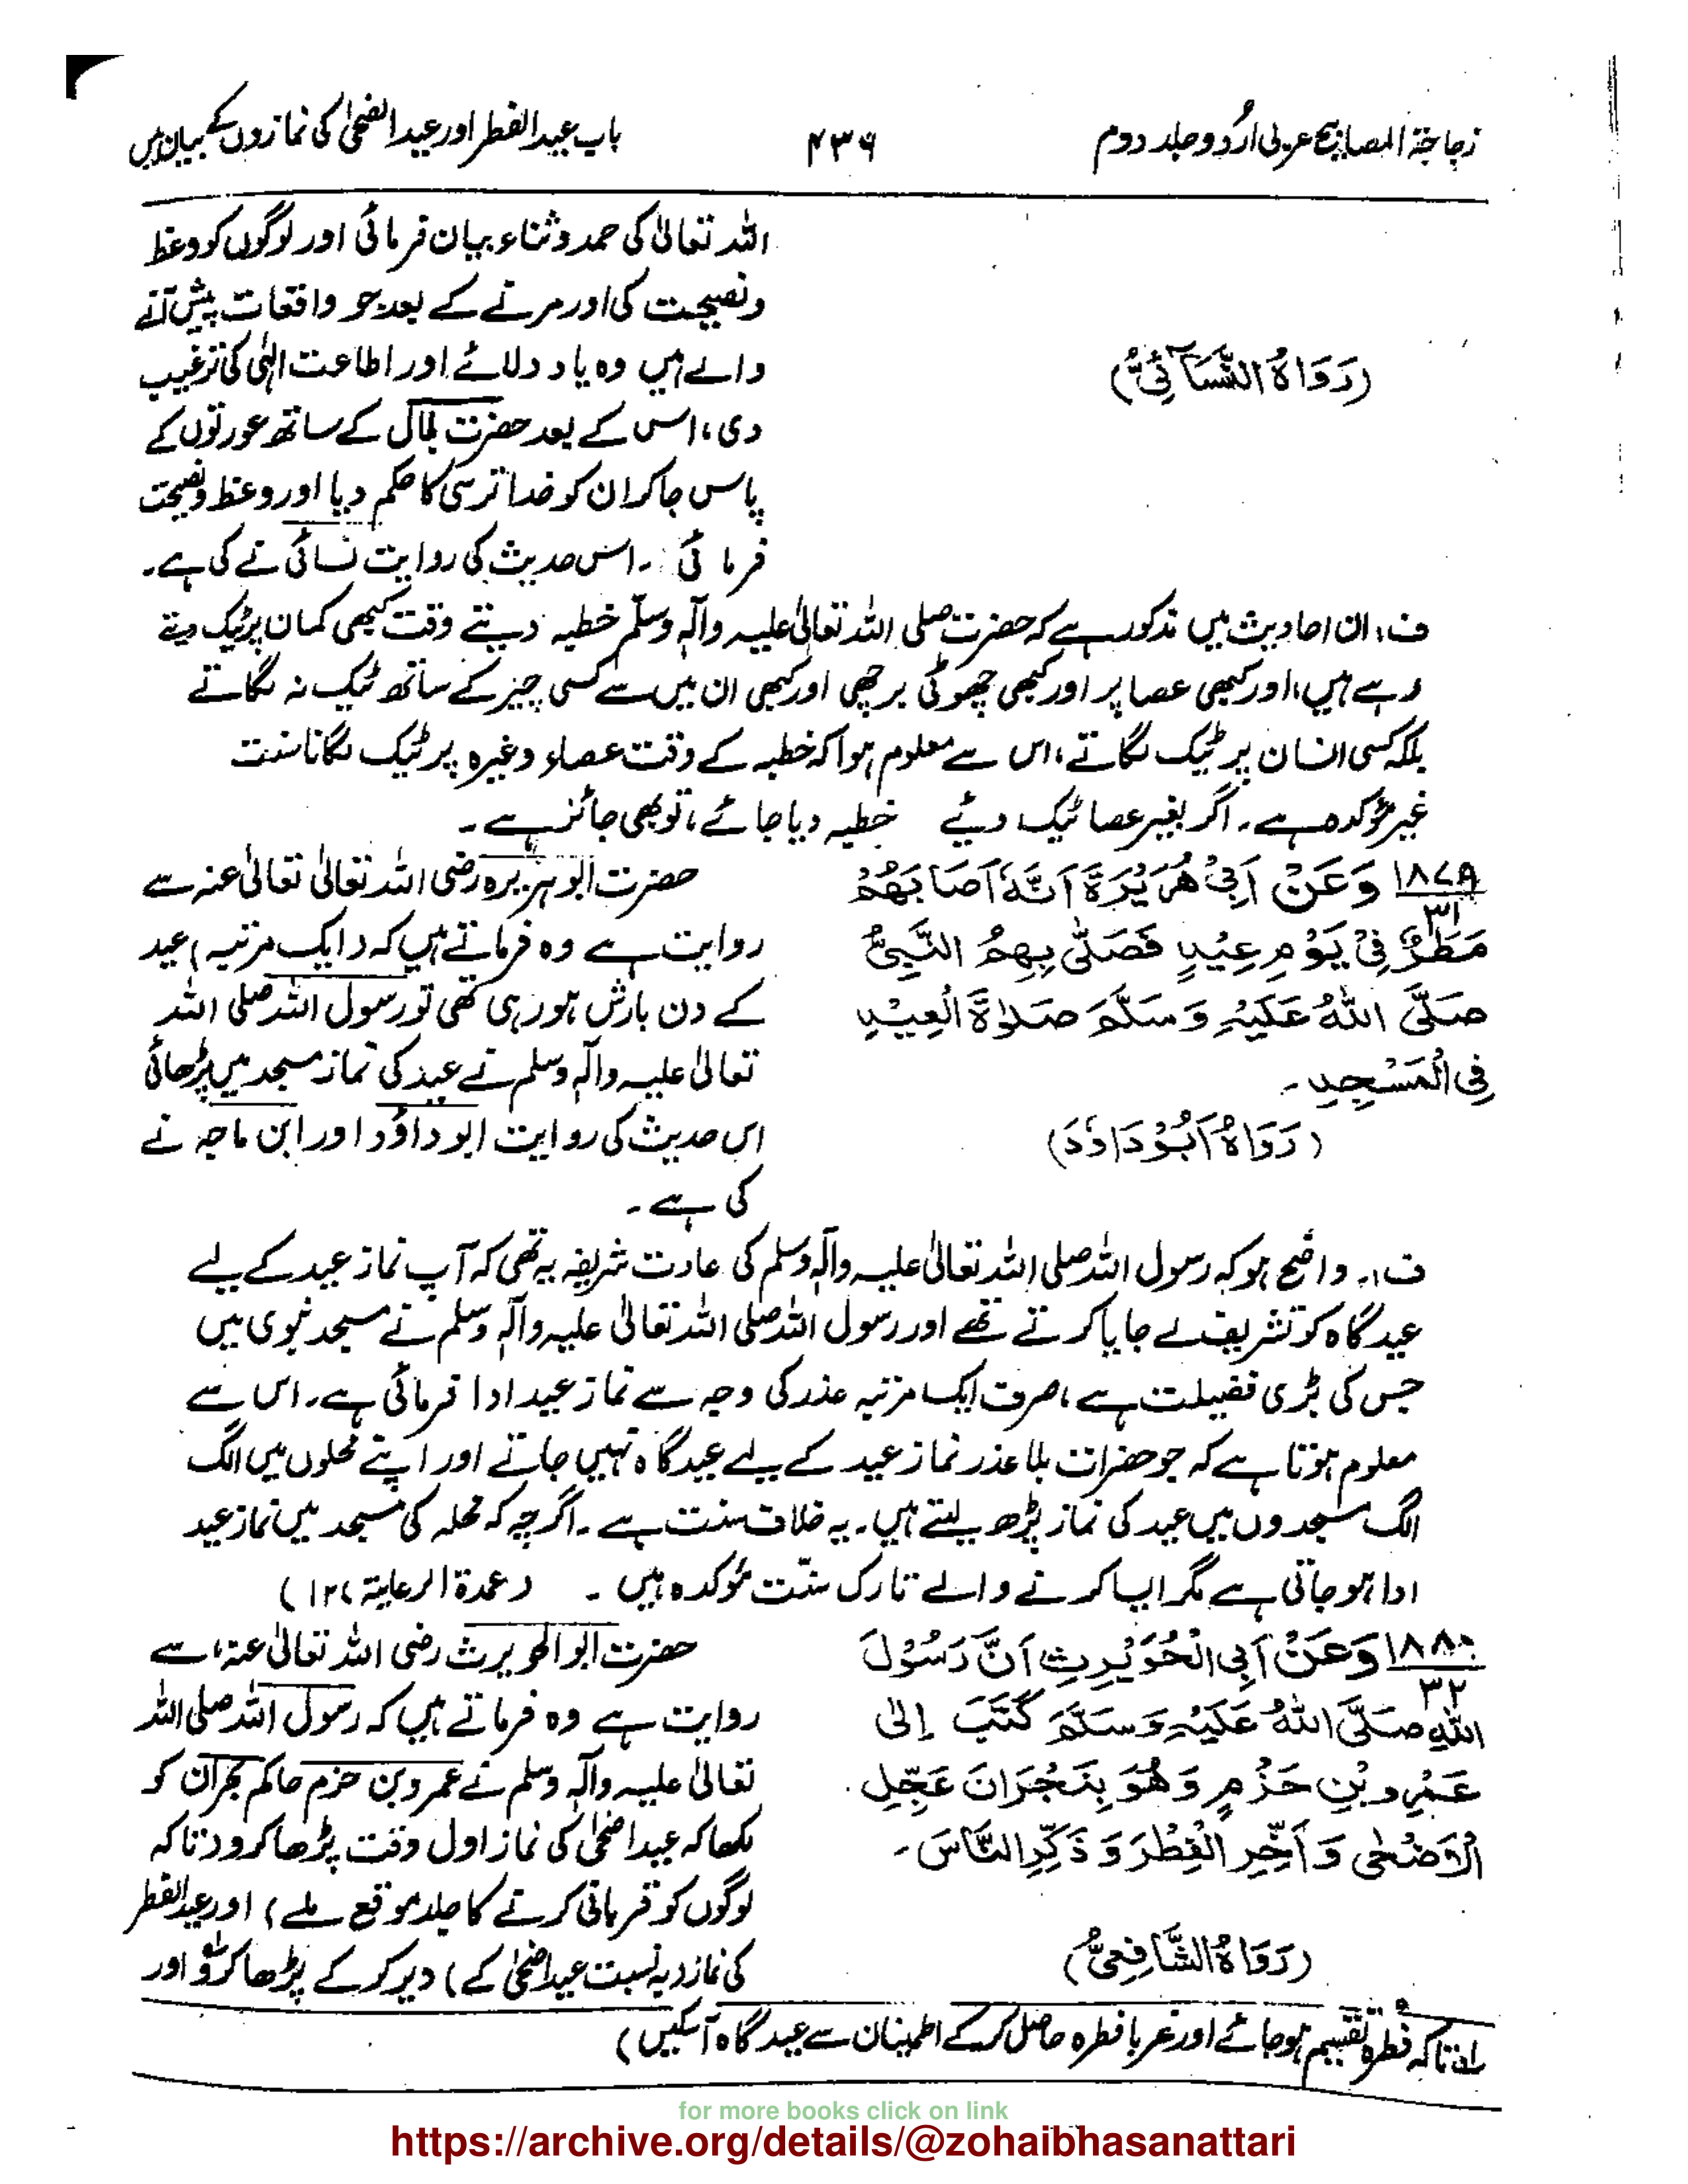 زجاجۃ المصابیح عربی اردو جلد دوم
۴۳۶
باب عید الفطر اور عید الضحیٰ کی نمازوں کے بیان میں
اللہ تعالیٰ کی حمد و ثناء بیان فرمائی اور لوگوں کو وعظ
و نصیحت کی اور مرنے کے بعد جو واقعات پیش آنے
والے ہیں وہ یاد دلائے اور اطاعت الہٰی کی ترغیب
(رَوَاهُ النَّسَآئِيُّ)
دی، اس کے بعد حضرت بلال کے ساتھ عورتوں کے
پاس جا کر ان کو خدا ترسی کا حکم دیا اور وعظ و نصیحت
فرمائی ۔ اس حدیث کی روایت نسائی نے کی ہے۔
ف: ان احادیث میں مذکور ہے کہ حضرت صلی اللہ تعالیٰ علیہ وآلہٖ وسلّم خطبہ دیتے وقت کبھی کمان پر ٹیک دیتے
رہے ہیں، اور کبھی عصا پر اور کبھی چھوٹی برچھی اور کبھی ان میں سے کسی چیز کے ساتھ ٹیک نہ لگاتے
بلکہ کسی انسان پر ٹیک لگاتے، اس سے معلوم ہوا کہ خطبہ کے وقت عصاء وغیرہ پر ٹیک لگانا سنت
غیر مؤکدہ ہے۔ اگر بغیر عصا ٹیک دیئے خطبہ دیا جائے، تو بھی جائز ہے۔
۱۸۷۹ وَعَنْ اَبِيْ هُرَيْرَةَ اَنَّهٗ اَصَابَهُمْ
۳۱
مَطَرٌ فِيْ يَوْمِ عِيْدٍ فَصَلّٰى بِهِمُ النَّبِيُّ
صَلَّى اللهُ عَلَيْهِ وَسَلَّمَ صَلٰوةَ الْعِيْدِ
فِي الْمَسْجِدِ ۔
(رَوَاهُ اَبُوْ دَاوٗدَ)
حضرت ابو ہریرہ رضی اللہ تعالیٰ تعالیٰ عنہ سے
روایت ہے وہ فرماتے ہیں کہ (ایک مرتبہ) عید
کے دن بارش ہو رہی تھی تو رسول اللہ صلی اللہ
تعالیٰ علیہ وآلہٖ وسلم نے عید کی نماز مسجد میں پڑھائی
اس حدیث کی روایت ابو داؤد اور ابن ماجہ نے
کی ہے ۔
ف:۔ واضح ہو کہ رسول اللہ صلی اللہ تعالیٰ علیہ وآلہٖ وسلم کی عادت شریفہ یہ تھی کہ آپ نماز عید کے لیے
عید گاہ کو تشریف لے جایا کرتے تھے اور رسول اللہ صلی اللہ تعالیٰ علیہ وآلہٖ وسلم نے مسجد نبوی میں
جس کی بڑی فضیلت ہے، صرف ایک مرتبہ عذر کی وجہ سے نماز عید ادا فرمائی ہے۔ اس سے
معلوم ہوتا ہے کہ جو حضرات بلا عذر نماز عید کے لیے عید گاہ نہیں جاتے اور اپنے محلوں میں الگ
الگ مسجدوں میں عید کی نماز پڑھ لیتے ہیں۔ یہ خلاف سنت ہے ۔ اگرچہ کہ محلہ کی مسجد میں نماز عید
ادا ہو جاتی ہے مگر ایسا کرنے والے تارک سنّت مؤکدہ ہیں ۔ (عمدۃ الرعایۃ، ۱۲)
۱۸۸۰ وَعَنْ اَبِي الْحُوَيْرِثِ اَنَّ رَسُوْلَ
۳۲
اللهِ صَلَّى اللهُ عَلَيْهِ وَسَلَّمَ كَتَبَ اِلٰى
عَمْرِو بْنِ حَزْمٍ وَهُوَ بِنَجْرَانَ عَجِّلِ
الْاَضْحٰى وَاَخِّرِ الْفِطْرَ وَذَكِّرِ النَّاسَ ۔
(رَوَاهُ الشَّافِعِيُّ)
حضرت ابو الحویرث رضی اللہ تعالیٰ عنہٗ، سے
روایت ہے وہ فرماتے ہیں کہ رسول اللہ صلی اللہ
تعالیٰ علیہ وآلہٖ وسلم نے عمرو بن حزم حاکم نجران کو
لکھا کہ عید اضحیٰ کی نماز اول وقت پڑھا کرو (تاکہ
لوگوں کو قربانی کرنے کا جلد موقع ملے) اور عید الفطر
کی نماز (بہ نسبت عید اضحیٰ کے) دیر کر کے پڑھا کرو لہ اور
لہ (تاکہ فطرہ تقسیم ہو جائے اور غربا فطرہ حاصل کر کے اطمینان سے عید گاہ آسکیں)
for more books click on link
https://archive.org/details/@zohaibhasanattari